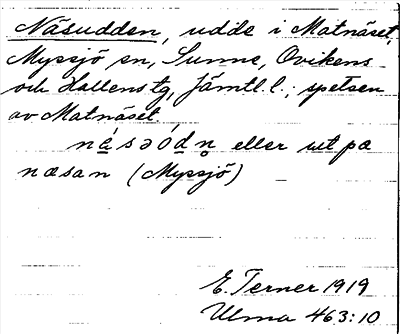 Näsudden, udde i Matnäset,
Myssjö sn, Sunne, Ovikens
och Hallens tg, Jämtl. l.; spetsen
av Matnäset
nɛ́səódn̥ eller ut pæ
næsan (Myssjö)
E. Terner 1919
Ulma 463:10